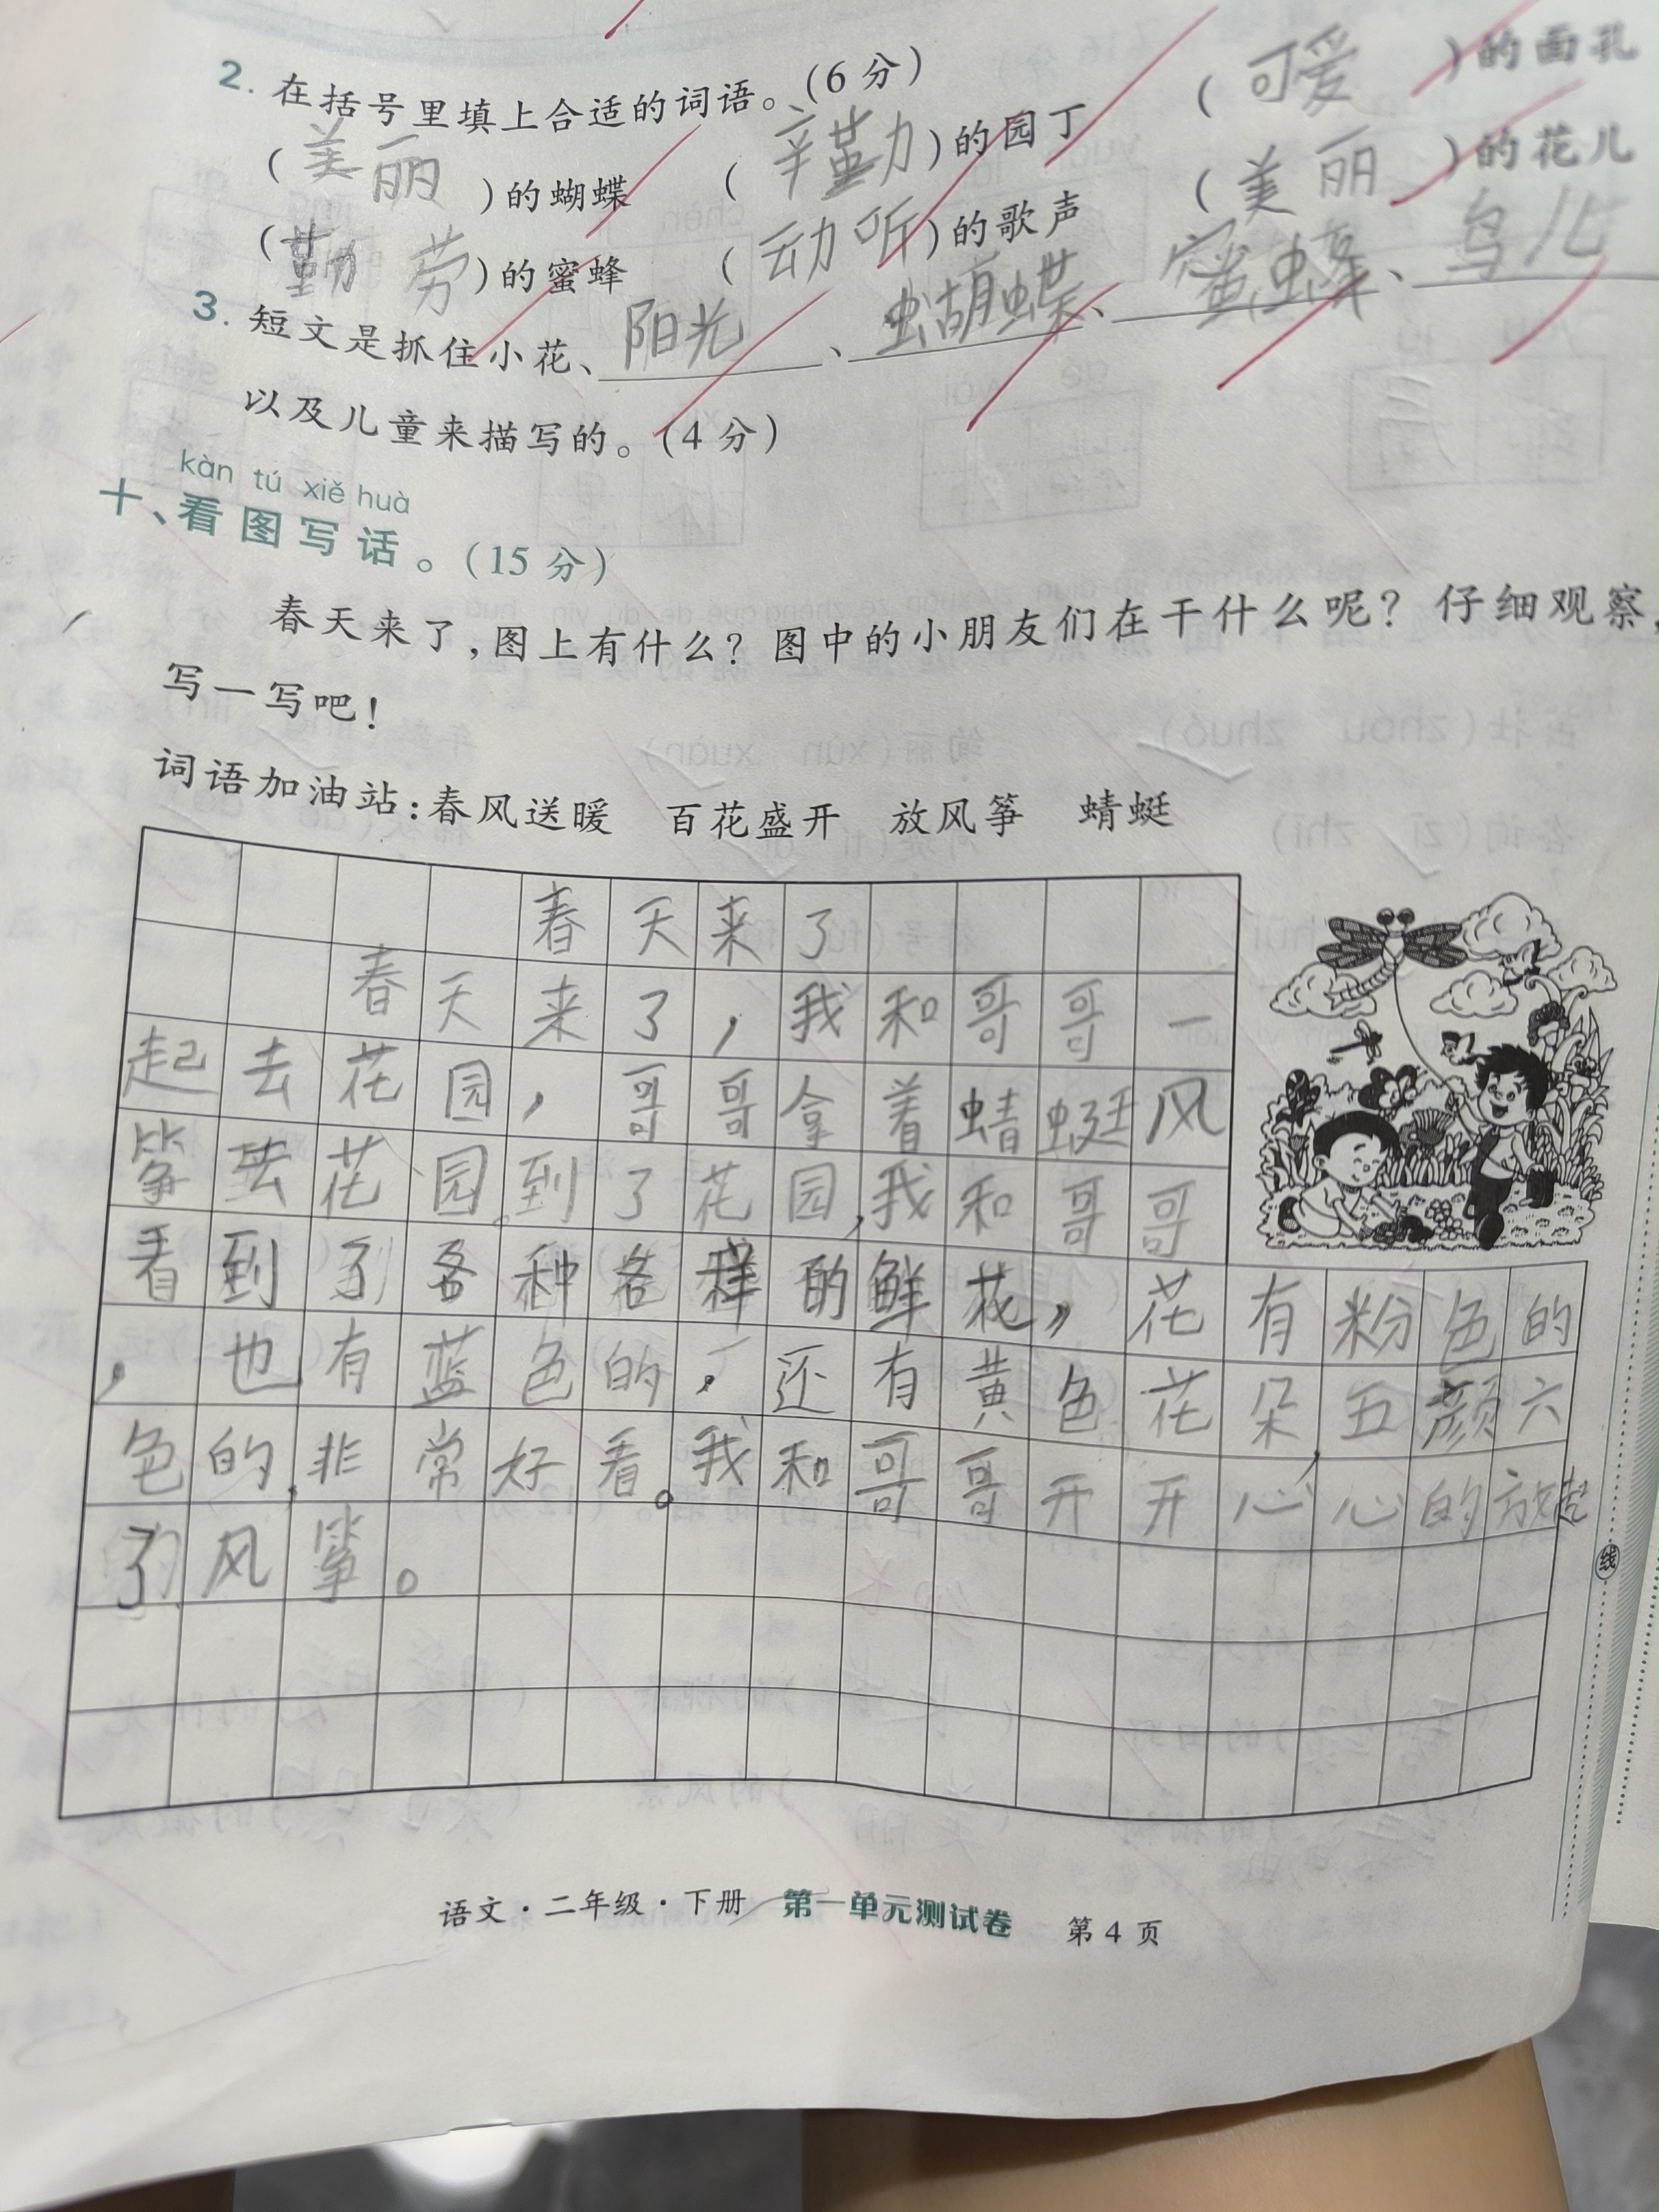 2. 在括号里填上合适的词语。(6分)
(美丽)的蝴蝶 (辛勤)的园丁 (可爱)的面孔
(勤劳)的蜜蜂 (动听)的歌声 (美丽)的花儿
3. 短文是抓住小花、阳光、蝴蝶、蜜蜂、鸟儿
以及儿童来描写的。(4分)
kàn tú xiě huà
十、看图写话。(15分)
春天来了,图上有什么?图中的小朋友们在干什么呢?仔细观察,
写一写吧!
词语加油站:春风送暖 百花盛开 放风筝 蜻蜓
春天来了
春天来了,我和哥哥一
起去花园,哥哥拿着蜻蜓风
筝去花园。到了花园,我和哥哥
看到了各种各样的鲜花,花有粉色的
,也有蓝色的,还有黄色花朵,五颜六
色的,非常好看。我和哥哥开开心心的放起
了风筝。
线
语文·二年级·下册 第一单元测试卷 第4页